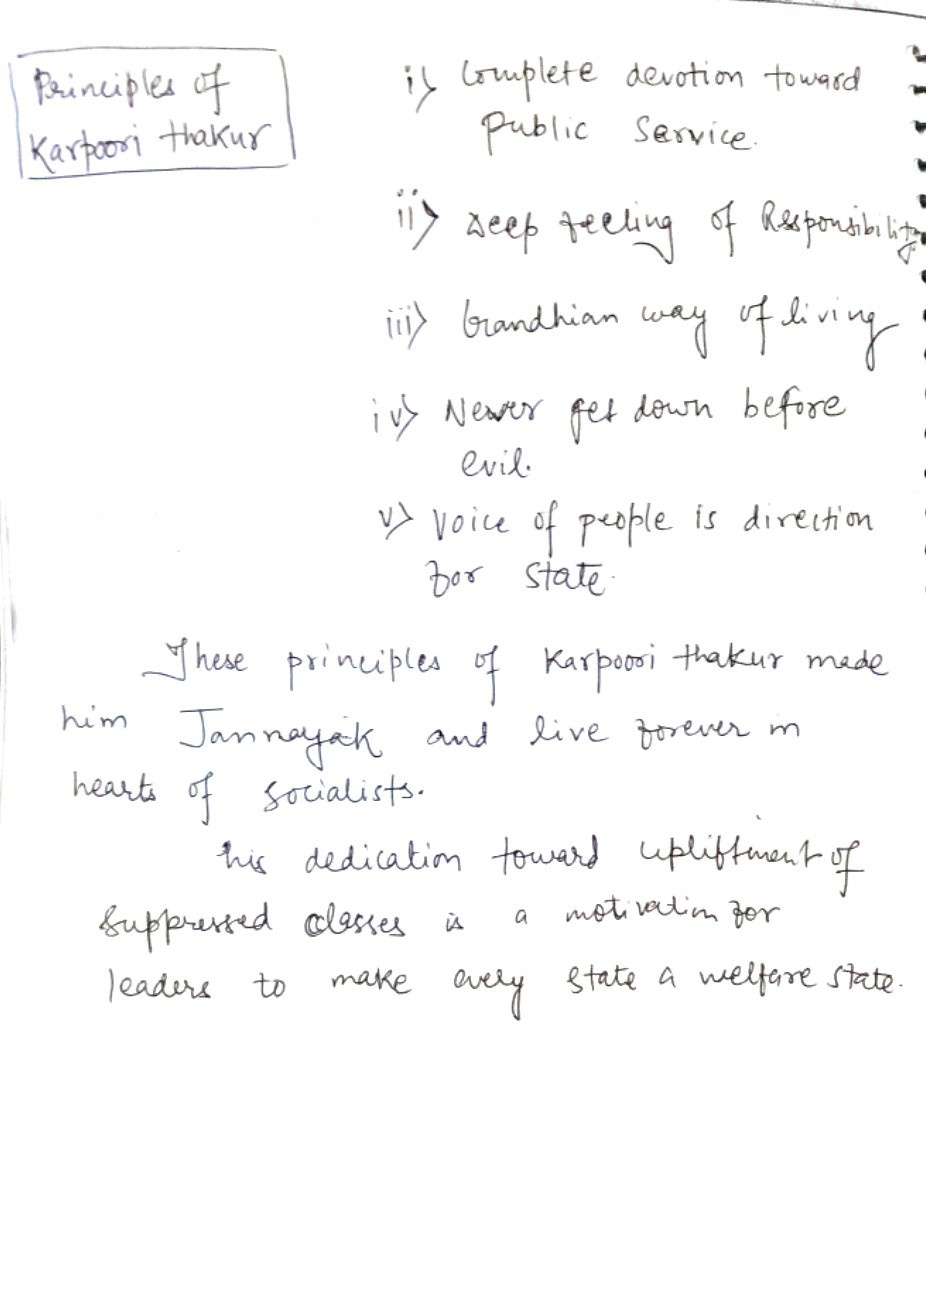 Principles of
Karpoori thakur
i> Complete devotion toward
Public Service.
ii> Deep feeling of Responsibility
iii> Gandhian way of living
iv> Never get down before
evil.
v> Voice of people is direction
for state.
These principles of Karpoori thakur made
him Jannayak and live forever in
hearts of socialists.
his dedication toward upliftment of
suppressed classes is a motivation for
leaders to make every state a welfare state.